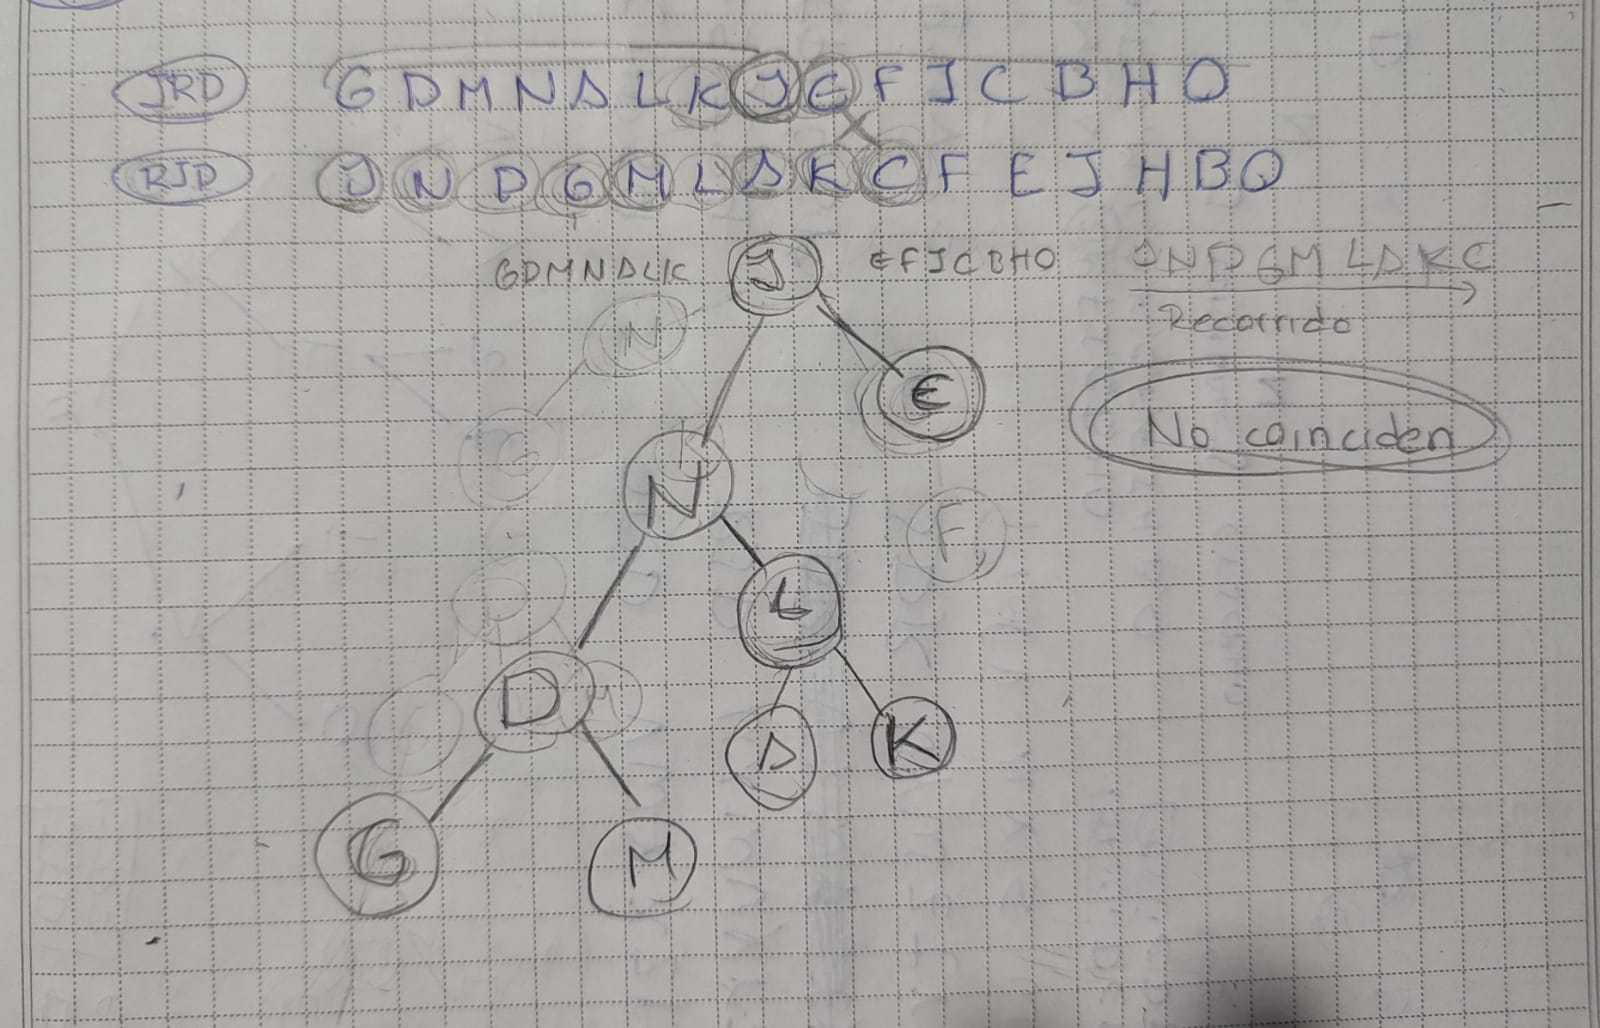 IRD G D M N A L K I E F J C B H O
RID I N D G M L A K C F E J H B O
GDMNALK I EFJCBHO INDGM LAKC
N Recorrido
E
No coinciden
G
N
F
L
D M
A K
G M